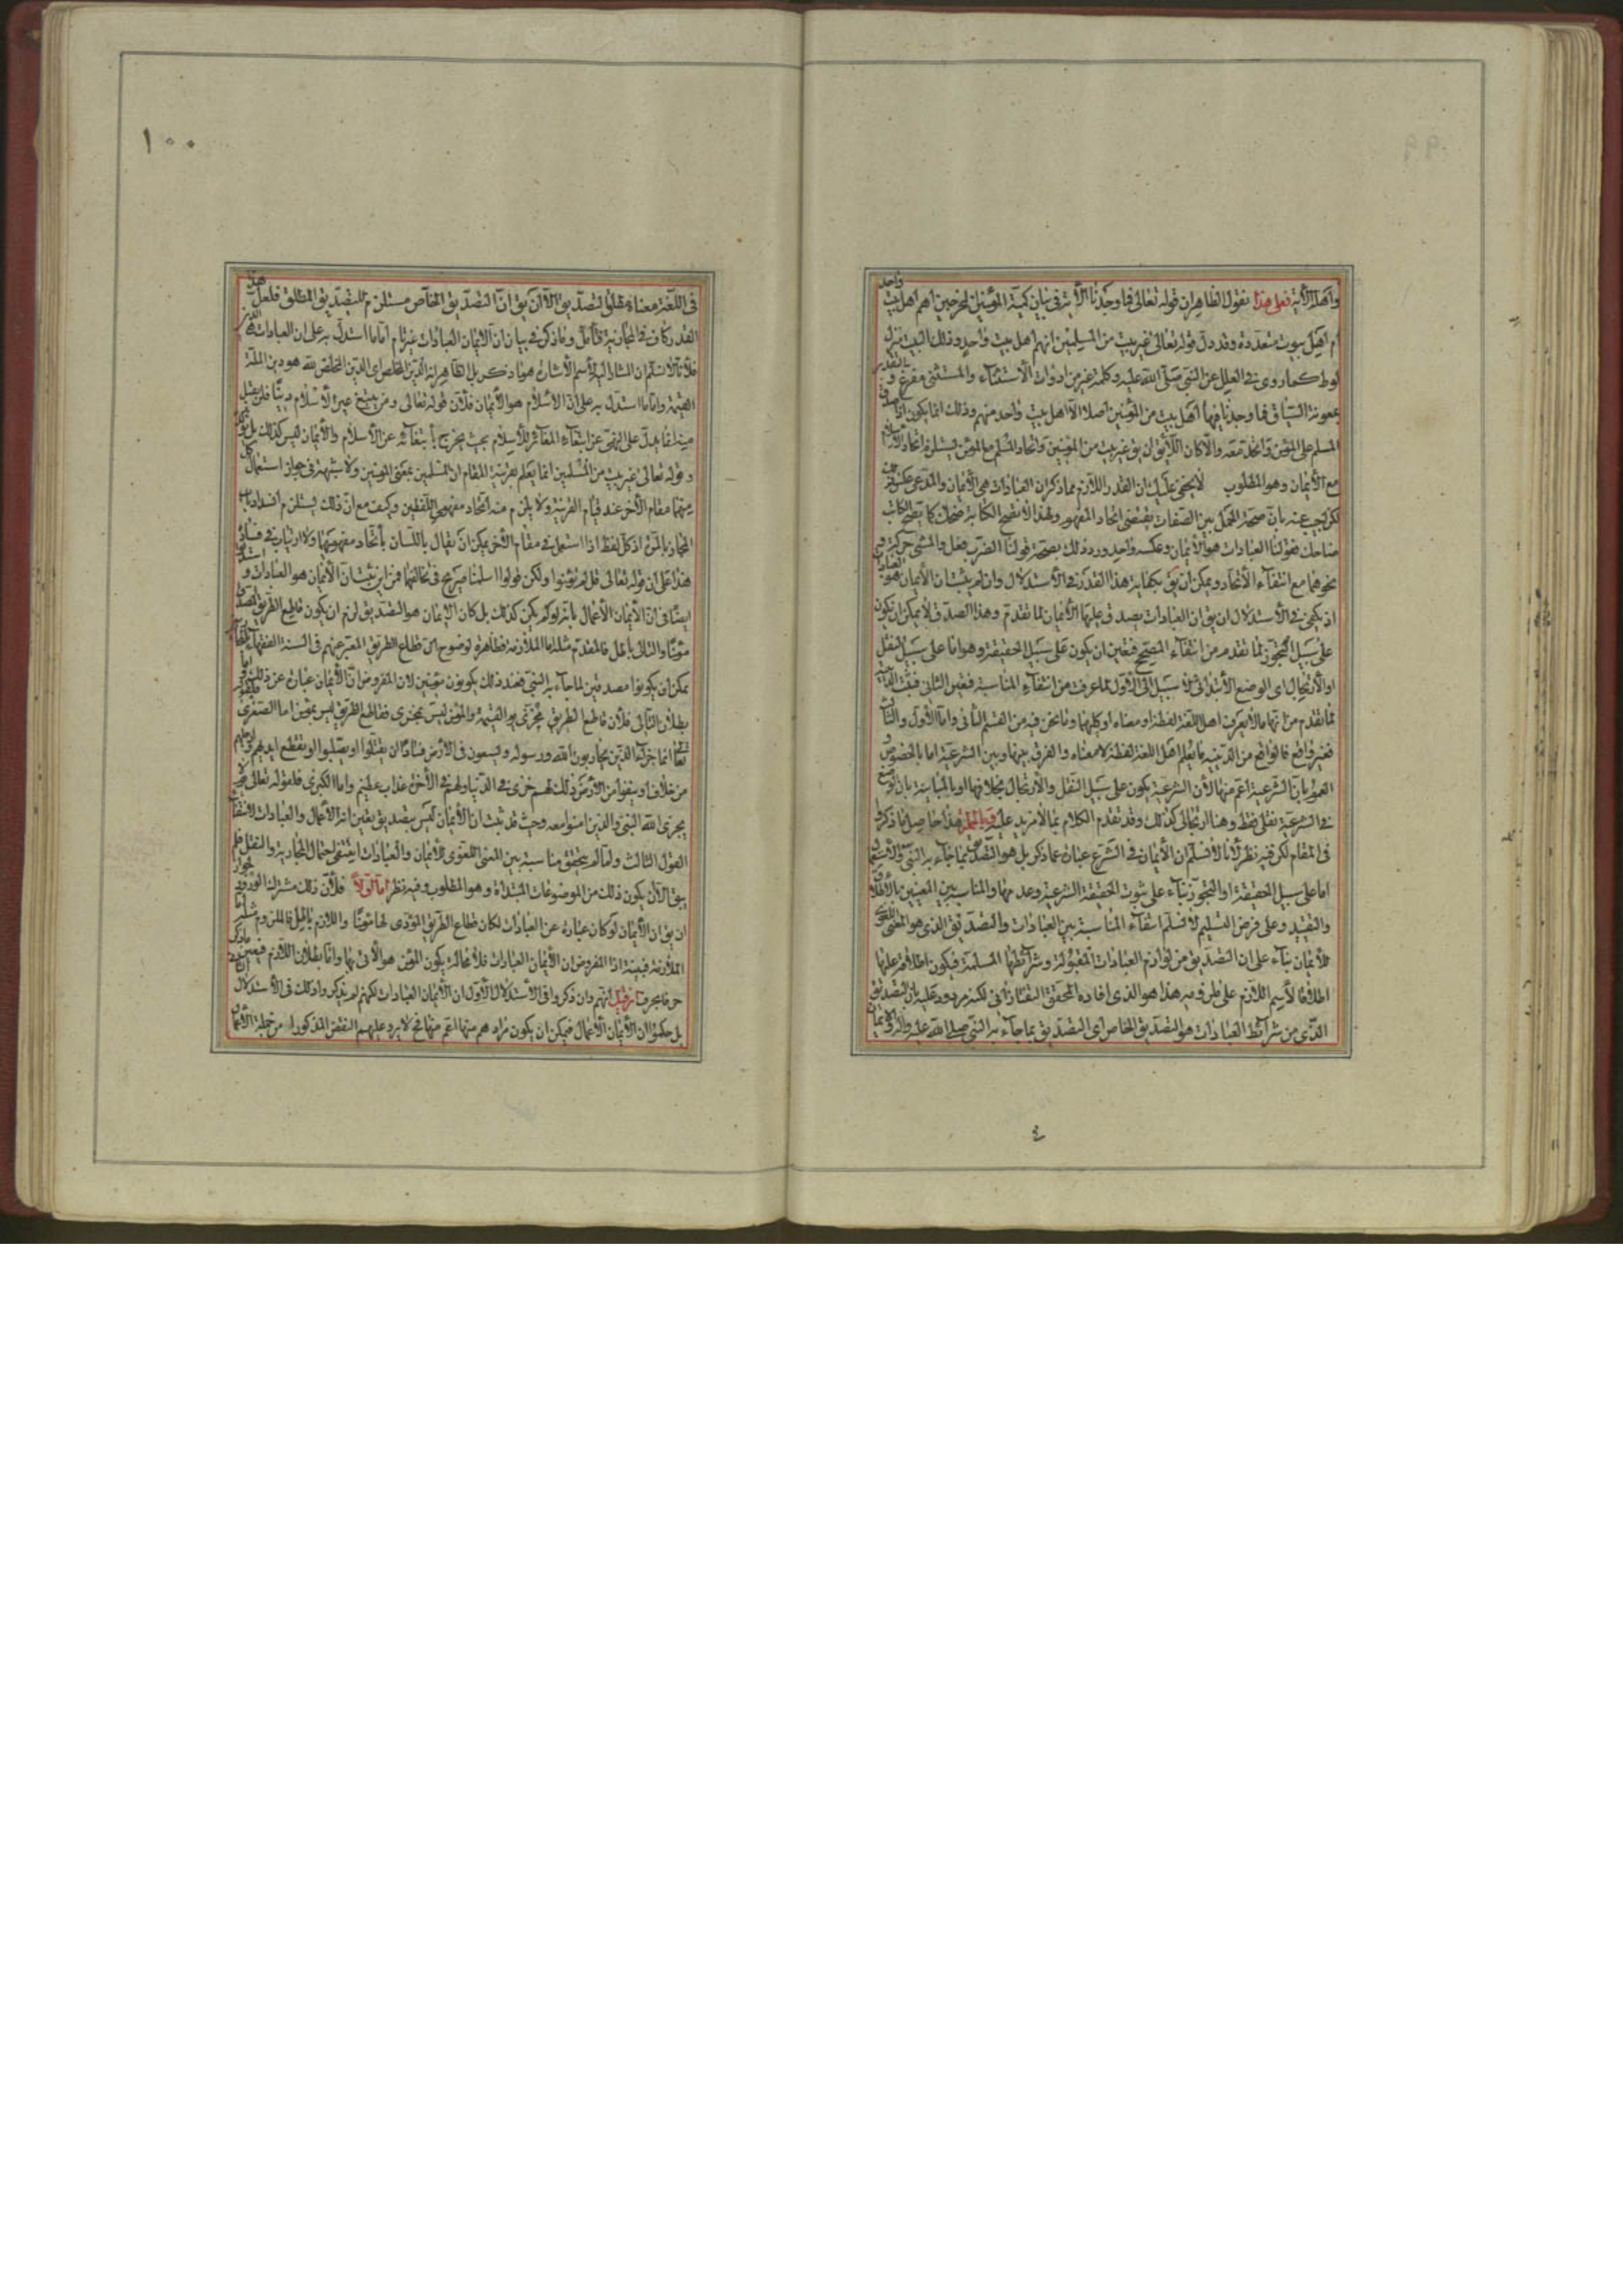 واهلها الآية فعلى هذا نقول الظاهر ان قوله تعالى فما وجدنا الآية في بيان كمية المؤمنين المخرجين اهم اهل بيت واحد
ام اهل بيوت متعددة وقد دل قوله تعالى غير بيت من المسلمين انهم اهل بيت واحد وذلك البيت منزل
لوط كما روى في العلل عن النبي صلى الله عليه وكلمة غير من ادوات الاستثناء والمستثنى مفرغ و التقدير
بمعونة السياق فما وجدنا فيها اهل بيت من المؤمنين اصلا الا اهل بيت واحد منهم وذلك انما يكون اذا صدق
المسلم على المؤمن واتحد معه والا كان اللائق ان يق غير بيت من المؤمنين واتحاد المسلم مع المؤمن يستلزم اتحاد الاسلام
مع الايمان وهو المطلوب لا يخفى عليك ان القدر اللازم مما ذكر ان العبادات هي الايمان والمدعى عكس
لكن اجيب عنه بان صحة الحمل بين الصفات يقتضى اتحاد المفهوم ولهذا لا تصح الكتابة ضحك كما تصح الكاتب
ضاحك فقولنا العبادات هو الايمان وعكسه واحد ورد ذلك بصحة قولنا الضرب فعل والمشى حركة و
نحوهما مع انتفاء الاتحاد ويمكن ان يق بكفاية هذا القدر في الاستدلال وان لم يثبت ان الايمان هو العبادات
اذ يكفى في الاستدلال ان يق ان العبادات يصدق عليها الايمان لما تقدم وهذا الصدق لا يمكن ان يكون
على سبيل التجوز لما تقدم من انتفاء المصحح فتعين ان يكون على سبيل الحقيقة وهو اما على سبيل النقل
او الارتجال اى الوضع الابتدائى لا سبيل الى الاول لما عرفت من انتفاء المناسبة فتعين الثانى فثبت
مما تقدم من انها ما لا يعرف اهل اللغة لفظه او معناه او كليهما وما نحن فيه من القسم الثانى واما الاول والثالث
فغير واقع فالواقع من الدينية ما يعلم اهل اللغة لفظه لا معناه والفرق بينها وبين الشرعية اما بالخصوص و
العموم بان الشرعية اعم منها لان الشرعية يكون على سبيل النقل والارتجال بخلافها او بالمباينة بان الوضع
في الشرعية نقلى فقط وهنا ارتجالى كذلك وقد تقدم الكلام بما لا مزيد عليه وبالجملة هذا حاصل ما ذكروا
في المقام لكن فيه نظر لانا لا نسلم ان الايمان في الشرع عبارة عما ذكر بل هو التصديق بما جاء به النبي والاستعمال
اما على سبيل الحقيقة او التجوز بناء على ثبوت الحقيقة الشرعية وعدمها والمناسبة بين المعنيين بالاطلاق
والتقييد وعلى فرض التسليم لا نسلم انتفاء المناسبة بين العبادات والتصديق الذى هو المعنى اللغوى
للايمان بناء على ان التصديق من لوازم العبادات المقبولة وشرائطها المسلمة فيكون اطلاقه عليها
اطلاقا لاسم اللازم على ملزومه هذا هو الذى افاده المحقق التفتازانى لكنه مردود عليه بان التصديق
الذى من شرائط العبادات هو التصديق الخاص اى التصديق بما جاء به النبي صلى الله عليه وآله والايمان
١٠٠
في اللغة معناه مطلق التصديق الا ان يق ان التصديق الخاص مستلزم للتصديق المطلق فلعل هذا
القدر كاف في المجازية فتأمل وما ذكر في بيان ان الايمان العبادات غير تام اما ما استدل به على ان العبادات هي الدين
فلانا لا نسلم ان المشار اليه لاسم الاشارة هو ما ذكر بل الظاهر انه الدين الخالص اى الدين المخلص لله هو دين الملة
القيمة واما ما استدل به على ان الاسلام هو الايمان فلان قوله تعالى ومن يبتغ غير الاسلام دينا فلن يقبل
منه انما يدل على النهى عن ابتغاء المغاير للاسلام بحيث يخرج بابتغائه عن الاسلام والايمان ليس كذلك بل
وقوله تعالى غير بيت من المسلمين انما يعلم بقرينة المقام ان المسلمين بمعنى المؤمنين ولا شبهة في جواز استعمال كل
منهما مقام الآخر عند قيام القرينة ولا يلزم منه اتحاد مفهومى اللفظين وكيف مع ان ذلك يستلزم انسداد باب
المجاز بالمرة اذ كل لفظ اذا استعمل في مقام الآخر يمكن ان يقال باللسان باتحاد مفهوميهما ولا ارتياب في فساده
هذا على ان قوله تعالى قل لم تؤمنوا ولكن قولوا اسلمنا صريح في تخالفهما فمن اين يثبت ان الايمان هو العبادات و استدل
ايضا في ان الايمان الاعمال بانه لو لم يكن كذلك بل كان الايمان هو التصديق لزم ان يكون قاطع الطريق المصدق
مؤمنا والتالى باطل فالمقدم مثله اما الملازمة فظاهرة لوضوح ان قطاع الطريق المعبر عنهم في السنة الفقهاء
يمكن ان يكونوا مصدقين لما جاء به النبي فعند ذلك يكونون مؤمنين لان المفروض ان الايمان عبارة عن ذلك واما
بطلان التالى فلان قاطع الطريق مخزى يوم القيمة والمؤمن ليس بمخزى فقاطع الطريق ليس بمؤمن اما الصغرى فلقوله
تعالى انما جزاء الذين يحاربون الله ورسوله ويسعون في الارض فسادا ان يقتلوا او يصلبوا او تقطع ايديهم وارجلهم
من خلاف او ينفوا من الارض ذلك لهم خزى في الدنيا ولهم في الآخرة عذاب عظيم واما الكبرى فلقوله تعالى يوم لا
يخزى الله النبي والذين امنوا معه وحيث قد ثبت ان الايمان ليس بتصديق يتعين انه الاعمال والعبادات لانتفاء
القول الثالث ولما لم يتحقق مناسبة بين المعنى اللغوى للايمان والعبادات ينتفى احتمال المجازية والنقل فلم
يبق الا ان يكون ذلك من الموضوعات المبتدأة وهو المطلوب وفيه نظر اما اولا فلان ذلك مشترك الورود
ان يق ان الايمان لو كان عبارة عن العبادات لكان قطاع الطريق المؤدى لها مؤمنا واللازم باطل فالملزوم مثله اما
الملازمة فبينة اذ المفروض ان الايمان العبادات فلا محالة يكون المؤمن هو الآتى بها واما بطلان اللازم فبعين ما ذكر
حرفا بحرف فان قيل انهم وان ذكروا في الاستدلال الاول ان الايمان العبادات لكنهم لم يذكروا ذلك في الاستدلال
بل حكموا ان الايمان الاعمال فيمكن ان يكون مرادهم منها اعم منها فح لا يرد عليهم النقض المذكور اذ من جملة الاعمال